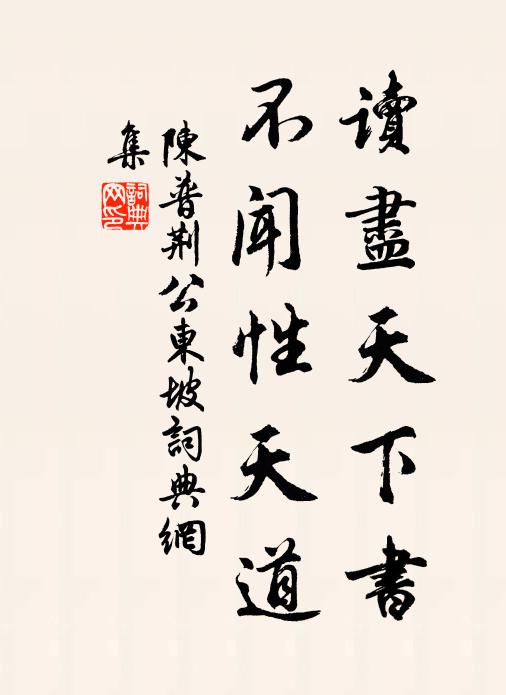 讀盡天下書
不聞性天道
陳普荆公東坡詞典網
集
詞典
网印